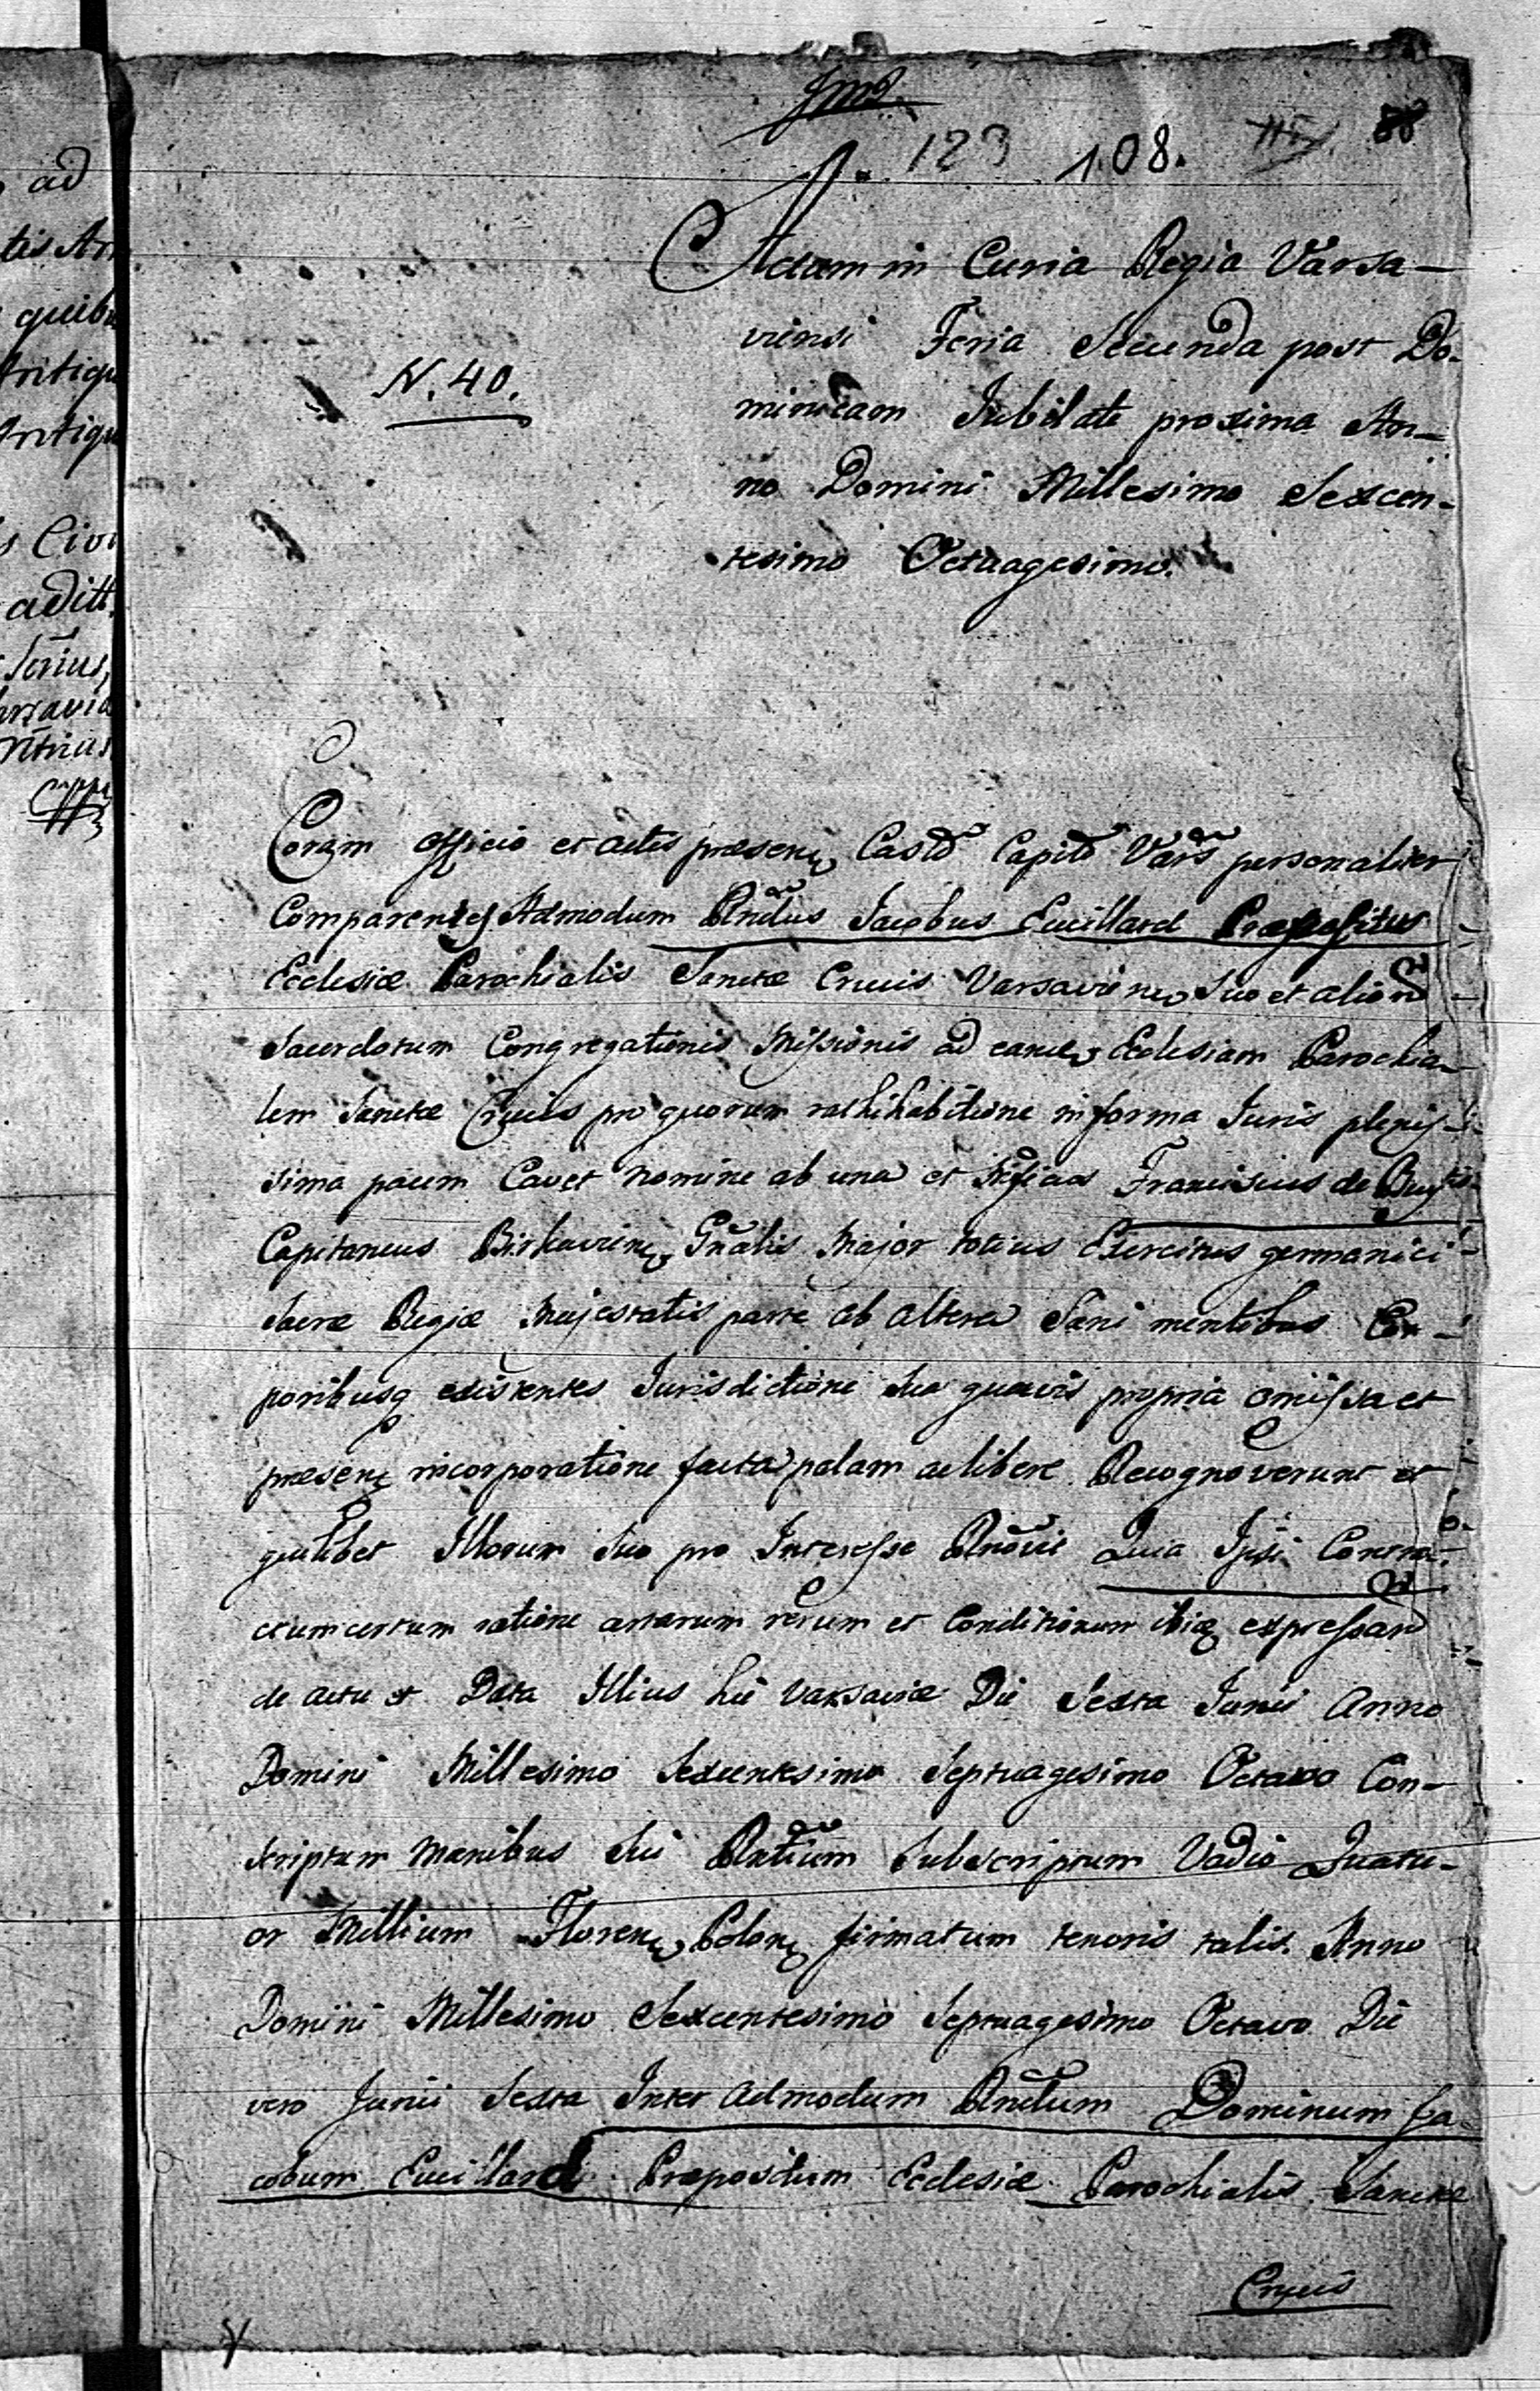 ad
quibu
Antiqu
aditt.
N. 40.
123 108.
Actum in Curia Regia Varsa-
viensi Feria Secunda post Do-
minicam Jubilate proxima An-
no Domini Millesimo Sexcen-
tesimo Octuagesimo.
Coram officio et actis præsen, Casto Capito Vars personaliter
Comparentes Admodum Rndus Jacobus Eveillard Præpositus
Ecclesiæ Parochialis Sanctæ Crucis Varsavien, suo et alior
Sacerdotum Congregationis Missionis ad eand, Ecclesiam Parochia-
lem Sanctæ Crucis pro quorum rathihabitione in forma Juris plenis-
sima Cavet nomine ab una et Francisus de
Capitaneus Gnalis Major totius Exercitus germanici
Sacræ Regiæ Majestatis parte ab altera Sani mentibus Cor-
poribusq existentes Jurisdictione sua quavis propria omissa et
præsen, incorporatione facta palam ac libere Recognoverunt et
quilibet Illorum suo pro Interesse Quia Ipsi Contra-
ctum certum ratione certarum rerum et Conditionum ibiq expressar
de actu et Data Illius hic Varsaviæ Die Sexta Junii Anno
Domini Millesimo Sexcentesimo Septuagesimo Octavo Con-
scriptum manibus Subscriptum Vadio Quatu-
or Millium Floren, Polon, firmatum tenoris talis. Anno
Domini Millesimo Sexcentesimo Septuagesimo Octavo Die
vero Junii Sexta Inter Admodum Rndum Dominum Ja-
cobum Eveillard Præpositum Ecclesiæ Parochialis Sanctæ
Crucis